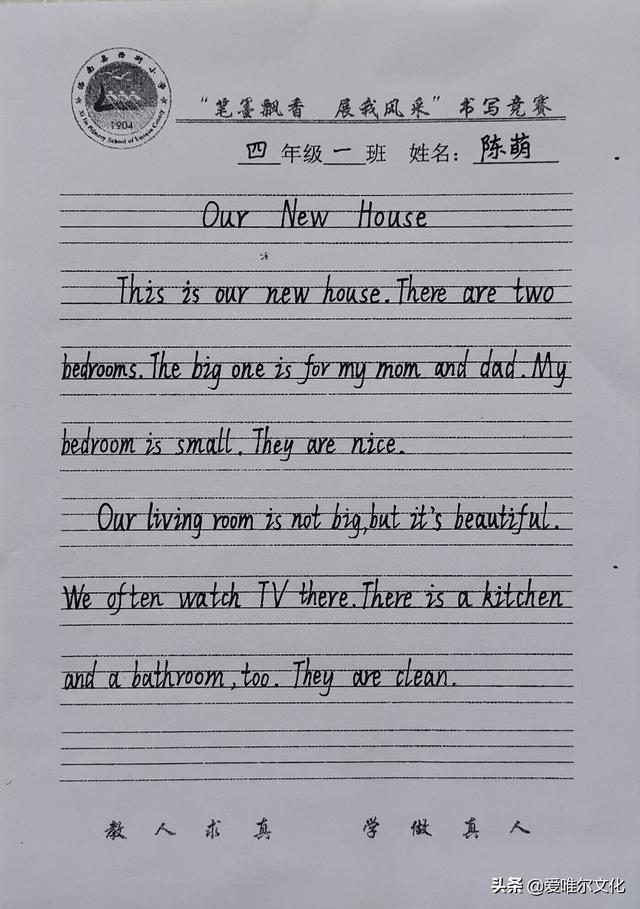 Primary School of
1904
“笔墨飘香 展我风采”书写竞赛
四 年级 一 班 姓名：陈萌
Our New House
This is our new house. There are two
bedrooms. The big one is for my mom and dad. My
bedroom is small. They are nice.
Our living room is not big, but it's beautiful.
We often watch TV there. There is a kitchen
and a bathroom, too. They are clean.
教人求真 学做真人
头条 @爱唯尔文化